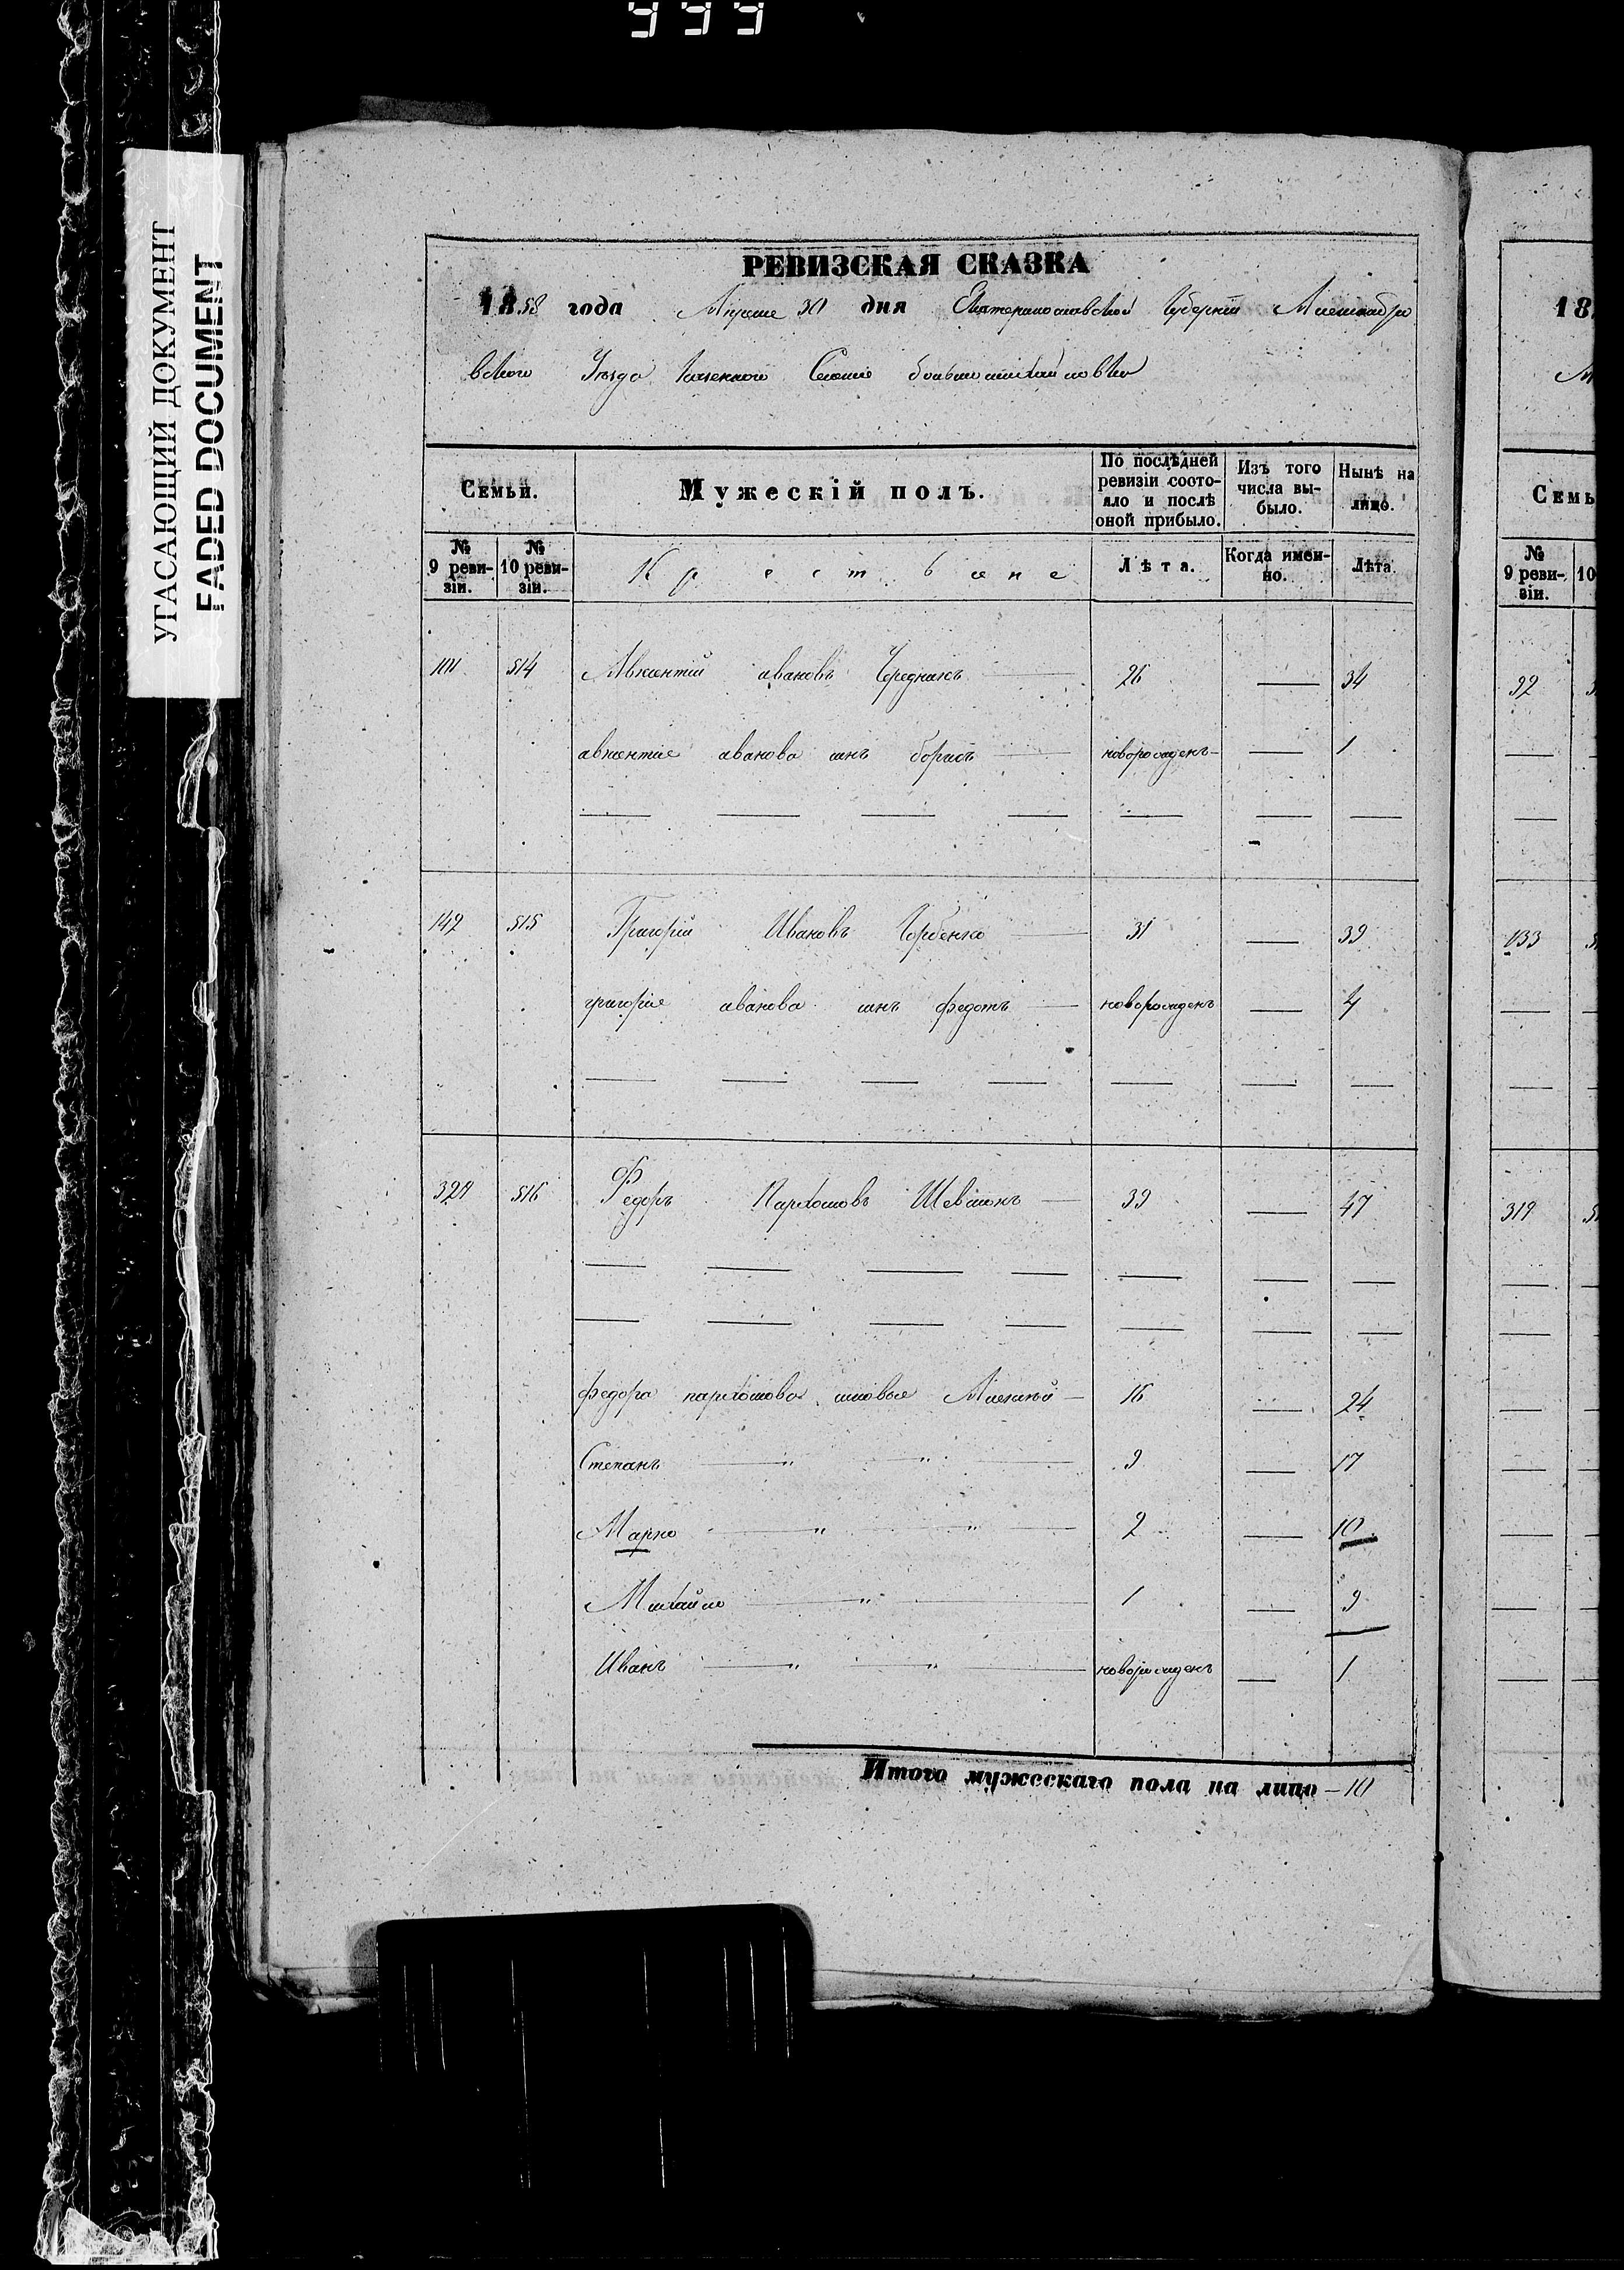 999
УГАСАЮЩИЙ ДОКУМЕНТ
FADED DOCUMENT
РЕВИЗСКАЯ СКАЗКА
1858 года Апреля 30 дня Екатеринославской Губернiи Александро
вского Уезда Казенного Селенiя большемихайловки
Семьи. Мужескiй полъ. По послѣдней ревизiи состояло и послѣ оной прибыло. Изъ того числа выбыло. Нынѣ на лицо.
№ 9 ревизiи. № 10 ревизiи. Крестьяне Лѣта. Когда именно. Лѣта.
101 514 Авксентiй ивановъ Чередникъ 26 — 34
авксентiя иванова сынъ борисъ новорожденъ — 1
142 515 Григорiй Ивановъ Горбенко 31 — 39
григорiя иванова сынъ федотъ новорожденъ — 4
321 516 Федоръ Пархомовъ Шевшонъ 39 — 47
федора пархомова сыновья Алексѣй 16 — 24
Степанъ — " — " — 9 — 17
Марко — " — " — 2 — 10
Михайло — " — 1 — 9
Иванъ — " — " — новорожденъ — 1
Итого мужескаго пола на лицо — 10
18
Семь
№ 9 ревизiи. 10
92
133
319